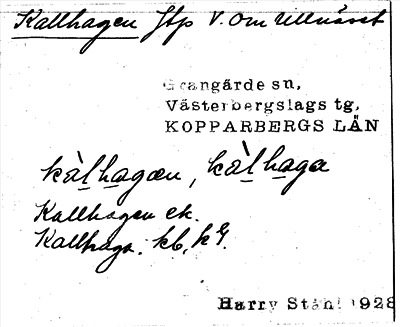 Kallhagen ftp V. om Ullnäset
Grangärde sn,
Västerbergslags tg,
KOPPARBERGS LÄN
kàlhagæn, kàlhaga
Kallhagen ek.
Kallhags. kb,
Harry Ståhl 1928